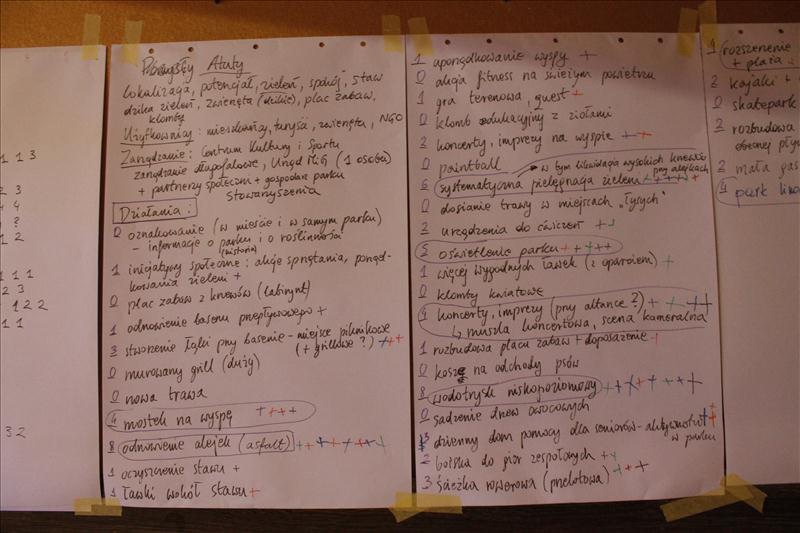 1 1 3
2 3
4 4
?
1 2
1 1 1
2 3
1 2 2
1 1
3 2
Pomysły Atuty
lokalizacja, potencjał, zieleń, spokój, staw
dzika zieleń, zwierzęta (dzikie), plac zabaw,
klomby
Użytkownicy: mieszkańcy, turyści, zwierzęta, NGO
Zarządzanie: Centrum Kultury i Sportu
zarządzanie długofalowe, Urząd MiG (1 osoba)
+ partnerzy społeczni + gospodarz parku
Stowarzyszenia
Działania:
0 oznakowanie (w mieście i w samym parku)
- informacje o parku i o roślinności
(historia)
1 inicjatywy społeczne: akcje sprzątania, porząd-
kowania zieleni +
0 plac zabaw z krzewów (labirynt)
1 odnowienie basenu przepływowego +
3 stworzenie łąki przy basenie - miejsce piknikowe
(+ grillowe?) +++
0 murowany grill (duży)
0 nowa trawa
4 mostek na wyspę ++++
8 odnowienie alejek (asfalt) ++++++++
1 oczyszczenie stawu +
1 ławki wokół stawu +
1 uporządkowanie wyspy +
0 akcja fitness na świeżym powietrzu
1 gra terenowa, quest +
0 klomb edukacyjny z ziołami
2 koncerty, imprezy na wyspie ++
0 paintball
w tym likwidacja wysokich krzewów
przy alejkach
6 systematyczna pielęgnacja zieleni ++++++
0 dosianie trawy w miejscach "łysych"
2 urządzenia do ćwiczeń ++
5 oświetlenie parku +++++
1 więcej wygodnych ławek (z oparciem) +
0 klomby kwiatowe
4 koncerty, imprezy (przy altance?) ++++
↳ muszla koncertowa, scena kameralna
1 rozbudowa placu zabaw + doposażenie +
0 kosze na odchody psów
8 wodotrysk niskopoziomowy ++++++++
0 sadzenie drzew owocowych
3 dzienny dom pomocy dla seniorów - aktywność +++
w parku
2 boiska do gier zespołowych ++
3 ścieżka rowerowa (przelotowa) +++
1 rozszerzenie
+ plaża
2 kajaki +
0 skatepark
2 rozbudowa
2 mała
4 park